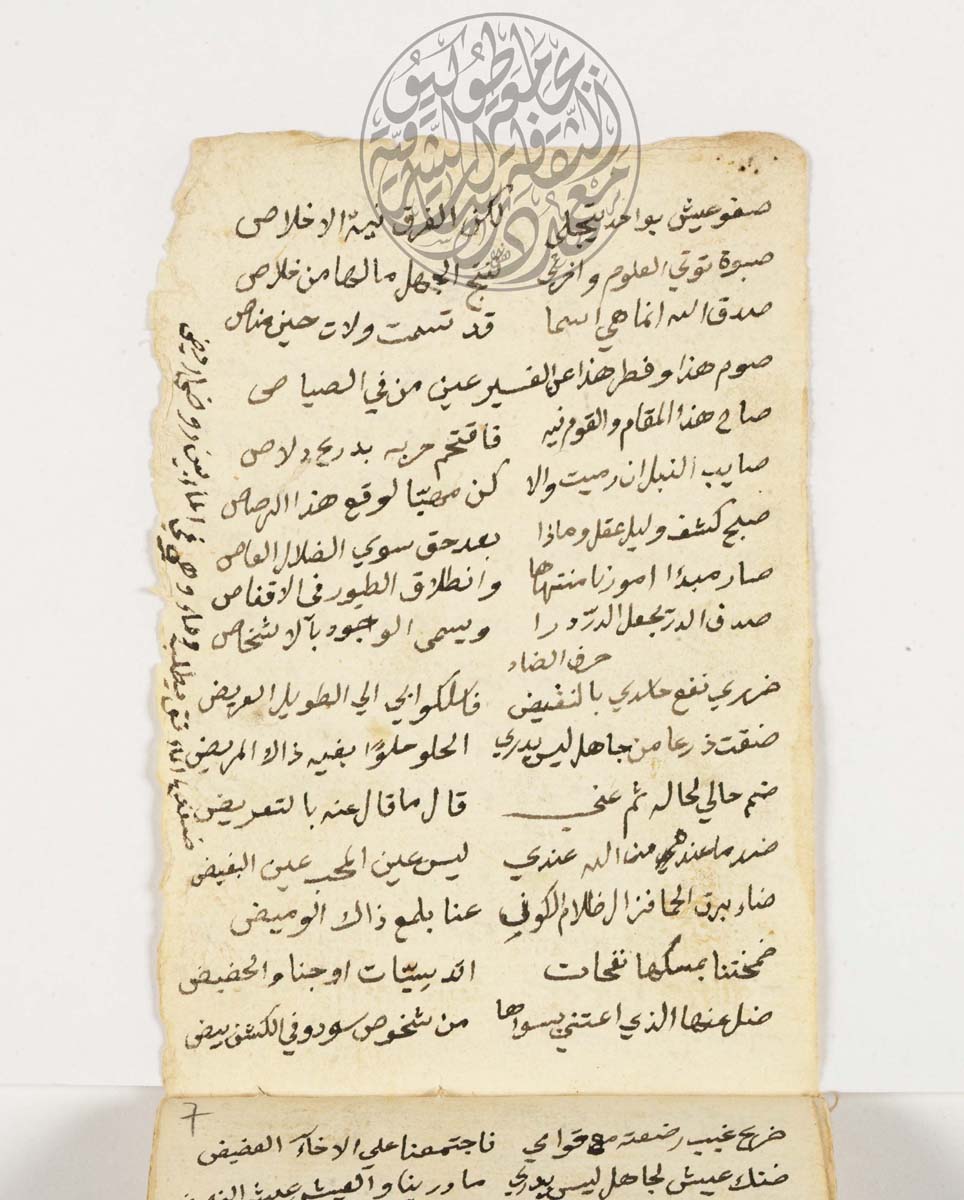 صفو عيش بواحد يتجلى لكن الفرق نية الاخلاص
صبوة توتي العلوم و تنتج الجهل مالها من خلاص
صدق الله انما هي اسما قد تسمت ولات حين مناص
صوم هذا وفطر هذا عن الغير عين من في الصياصى
صاح هذا المقام والقوم فيه فاقتحم حربه بدرع دلاص
صايب النبل ان رميت والا كن مهيّا لوقع هذا الرصاص
صبح كشف وليل عقل وماذا بعد حق سوي الضلال العاص
صار مبدا امورنا منتهاها وانطلاق الطيور في الاقفاص
صدف الدر يجعل الدرّ درا ويسمى الوجود بالاشخاص
حرف الضاد
ضرري نفع حاسدي بالنقيض فاسلكوا بي الي الطويل العريض
ضقت ذرعا من جاهل ليس يدري الحلو حلوًا بفيه ذاك المريض
ضم حالي لحاله ثم عني قال ما قال عنه بالتعريض
ضد ما عندهم من الله عندي ليس عين المحب عين البغيض
ضاء برق الحما فزال ظلام الكون عنا بلمع ذاك الوميض
ضمختنا بمسكها نفحات اوجنا والحضيض
ضل عنها الذي اعتني بسواها من شخوص سود وفي الكشف بيض
7
ضرع غيب رضعته مع قوامي فاجتمعنا علي الاخآء الغضيض
ضنك عيش لجاهل ليس يدري ما درينا والعيش عيش